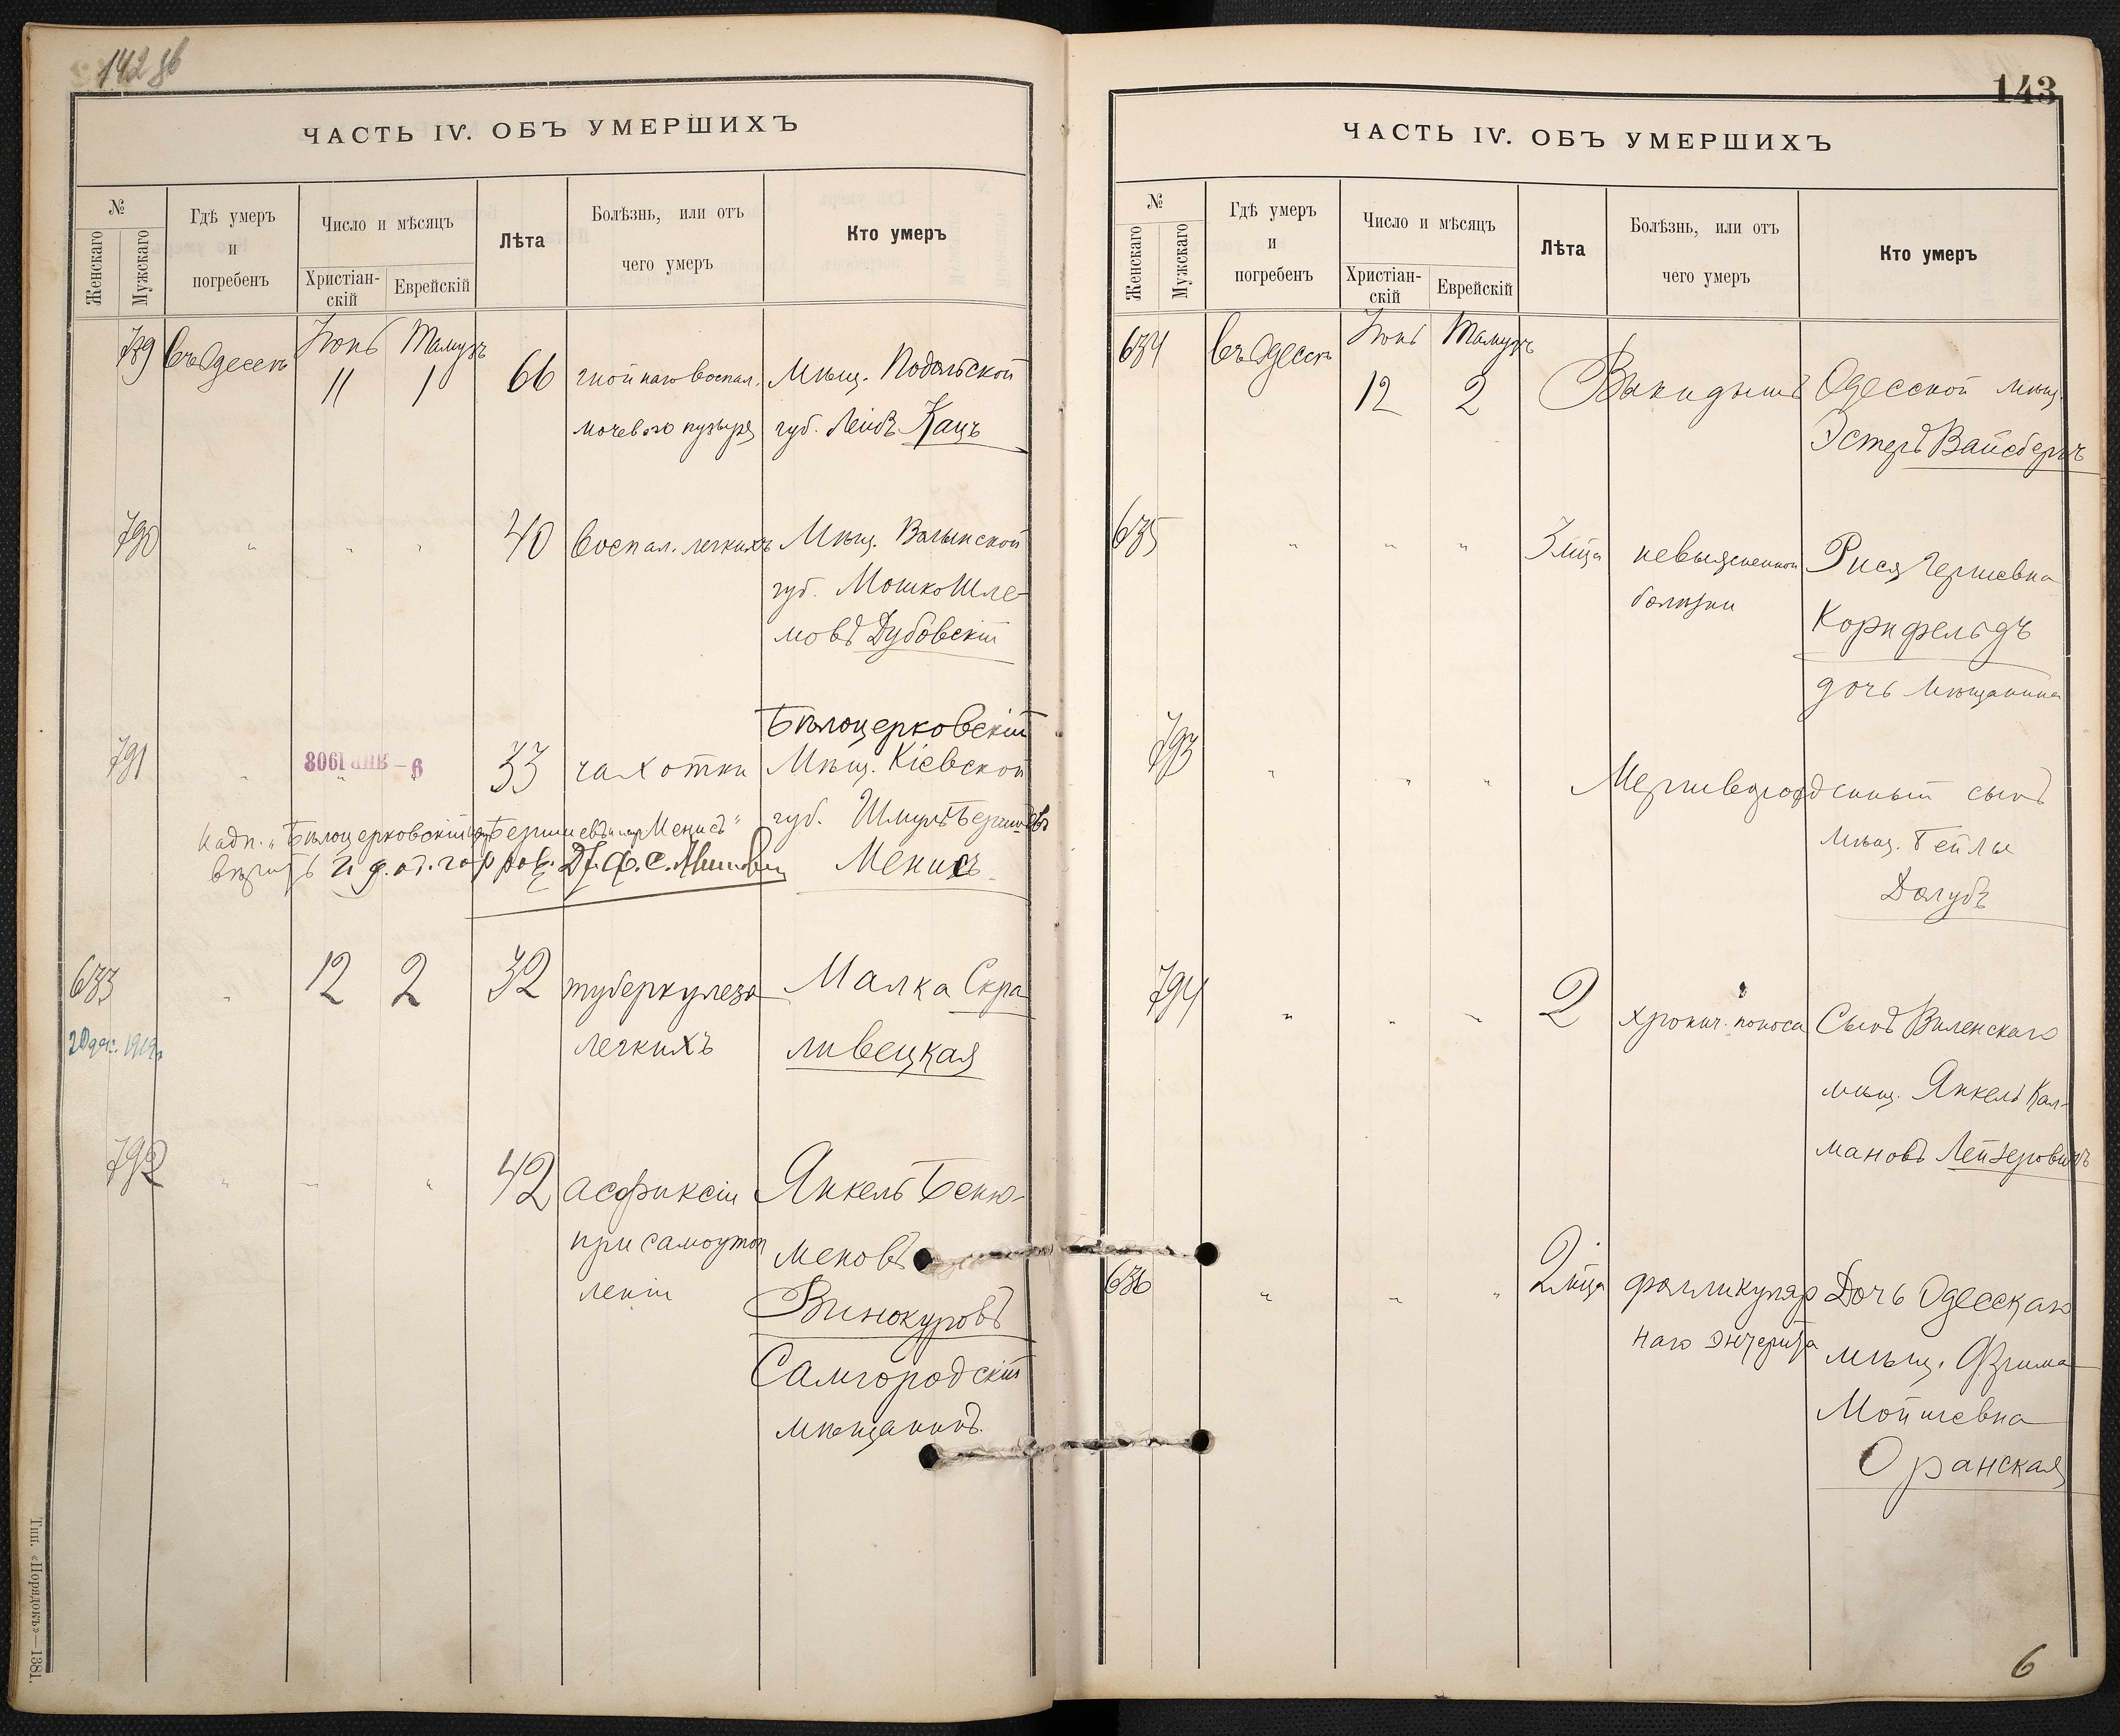 142 об
ЧАСТЬ IV. ОБЪ УМЕРШИХЪ
№
Женскаго
Мужскаго
Гдѣ умеръ
и
погребенъ
Число и мѣсяцъ
Христіан-
скій
Еврейскій
Лѣта
Болѣзнь, или отъ
чего умеръ
Кто умеръ
789 въ Одессѣ Іюнь 11 Тамузъ 1 66 гнойнаго воспал. Мѣщ. Подольской
мочевого пузыря губ. Лейбъ Кацъ
790 " " " 40 воспал. легкихъ Мѣщ. Волынской
губ. Мошко Шле-
мовъ Дубовскій
Бѣлоцерковскій
791 " 9 - ЯНВ 1908 33 чахотки Мѣщ. Кіевской
губ. Шмуль Бершовъ
Менисъ
Надп. "Бѣлоцерковскій" "Бершовъ" и "Менисъ"
вѣрить И. д. од. гор. рав.
633 " 12 2 32 туберкулеза Малка Скра
20 дек. 1912 г.
легкихъ ливецкая
792 " " " 42 асфиксіи Янкель Беню-
при самоутоп меновъ
леніи Винокуровъ
Самгородскій
мѣщанинъ.
Тип. «Порядокъ»—1881.
143
ЧАСТЬ IV. ОБЪ УМЕРШИХЪ
№
Женскаго
Мужскаго
Гдѣ умеръ
и
погребенъ
Число и мѣсяцъ
Христіан-
скій
Еврейскій
Лѣта
Болѣзнь, или отъ
чего умеръ
Кто умеръ
634 въ Одессѣ Іюнь 12 Тамузъ 2 Выкидышъ Одесской мѣщ.
Эстеръ Вайсбергъ
635 " " " 3 мца невыясненной Рися Гершевна
болѣзни Корнфельдъ
дочь мѣщанина
793 " " " Мертворожденный сынъ
мѣщ. Бейлы
Долубъ
794 " " " 2 хронич. поноса Сынъ Виленскаго
мѣщ. Янкель Кал-
мановъ Лейзеровичъ
636 " " " 2 мца фолликуляр Дочь Одесскаго
наго энтерита мѣщ. Фрима
Мойшевна
Оранская
6